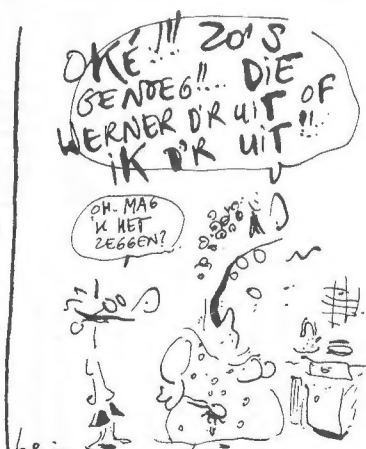 OKÉ!!! ZO'S
GENOEG!!.. DIE
WERNER D'R UIT OF
IK D'R UIT!!
OH.. MAG
IK HET
ZEGGEN?